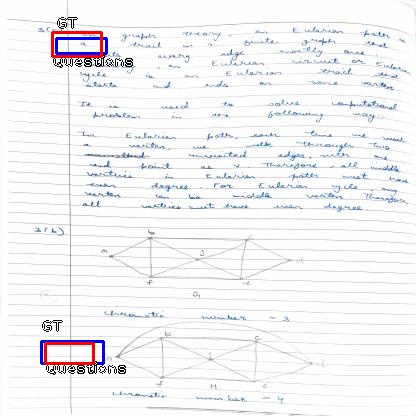 GT
3(a) In graph theory, an Eulerian path is
a trail in a finite graph that
every edge exactly once.
an Eulerian circuit or Eulerian
cycle is an Eulerian trail that
starts and ends on same vertex
It is used to solve computational
problem in the following way..
In Eulerian path, each time we visit
a vertex, we walk through two
unvisited edges, with one
end point as v Therefore, all middle
vertices in Eulerian path must have
even degree. For Eulerian cycle, any
vertex can be middle vertex. Therefore,
all vertices must have even degree
Questions
3(b)
a b c d e f g
G
chromatic number - 3
GT
b c d e f
H
Questions
chromatic number - 4